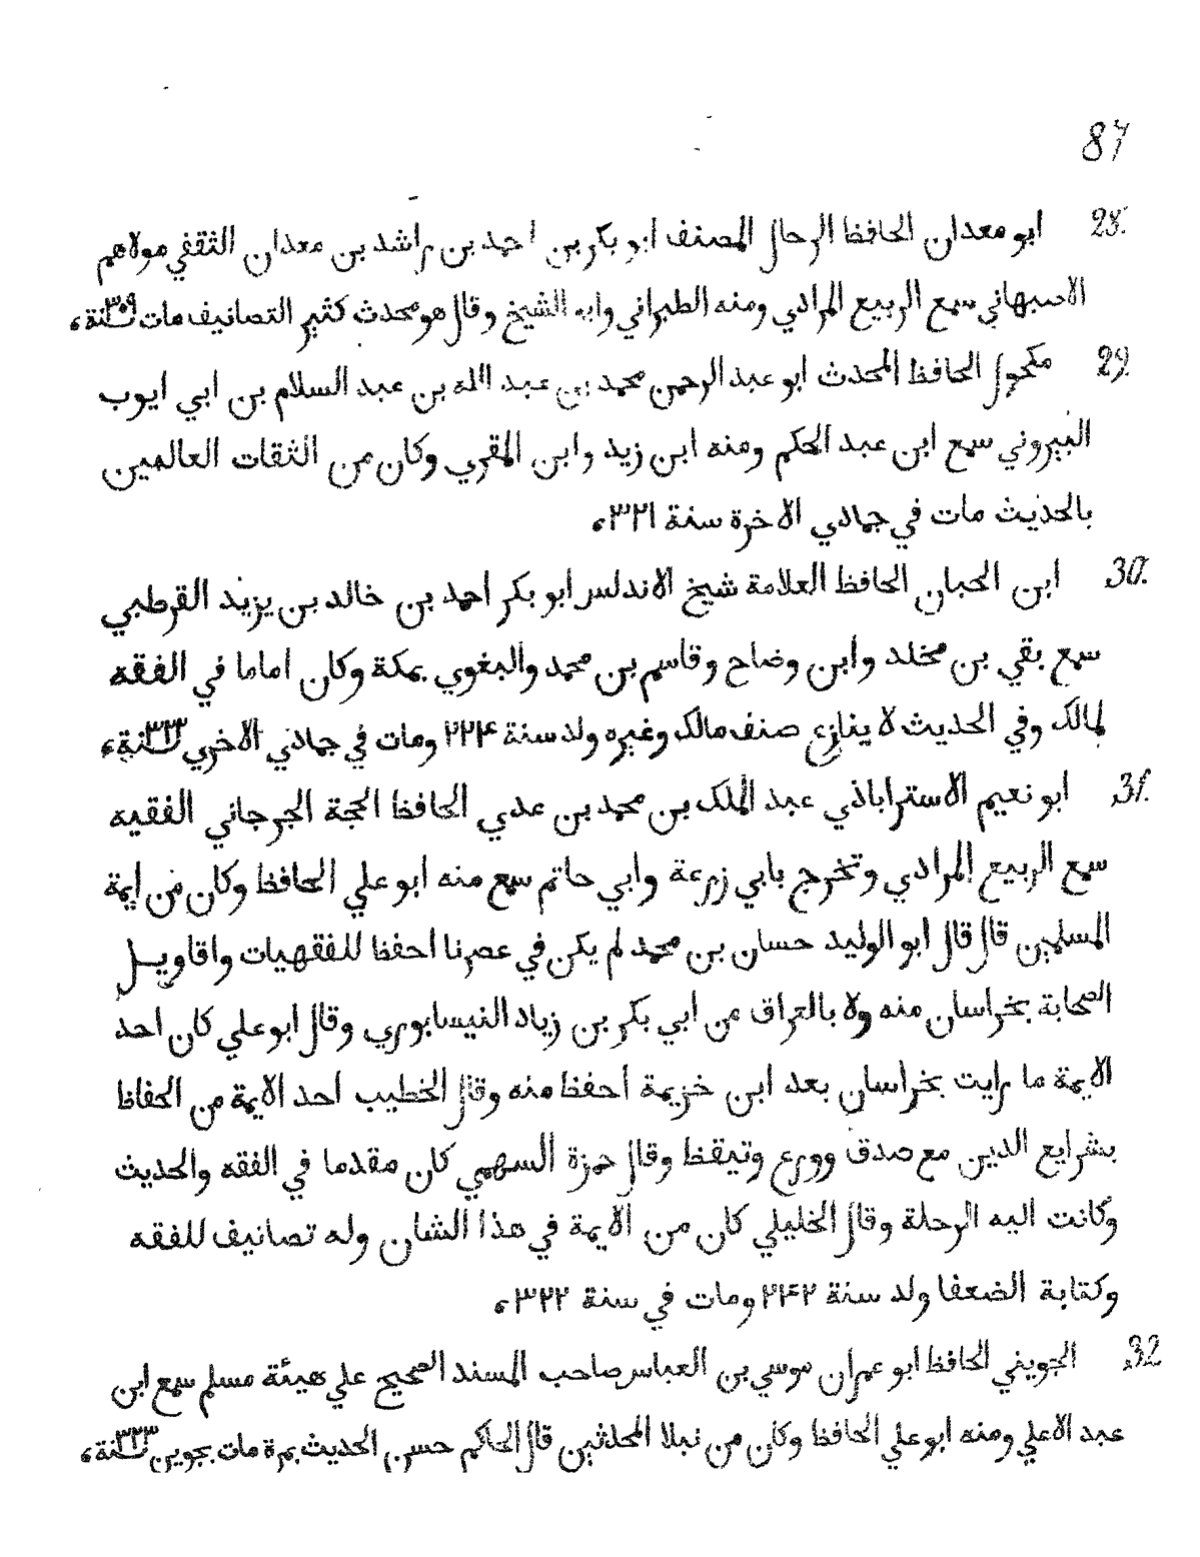 87
28. ابو معدان الحافظ الرحال المصنف ابو بكر بن احمد بن راشد بن معدان الثقفي مولاهم
الاصبهاني سمع الربيع المرادي ومنه الطبراني وابو الشيخ وقال هو محدث كثير التصانيف مات سنة ٣٠٩،
29. مكحول الحافظ المحدث ابو عبد الرحمن محمد بن عبد الله بن عبد السلام بن ابي ايوب
البيروني سمع ابن عبد الحكم ومنه ابن زيد وابن المقري وكان من الثقات العالمين
بالحديث مات في جمادي الاخرة سنة ٣٢١،
30. ابن الحبان الحافظ العلامة شيخ الاندلس ابو بكر احمد بن خالد بن يزيد القرطبي
سمع بقي بن مخلد وابن وضاح وقاسم بن محمد والبغوي بمكة وكان اماما في الفقه
لمالك وفي الحديث لا ينازع صنف مالك وغيره ولد سنة ٢٢٤ ومات في جمادي الاخري سنة ٣٢٣،
31. ابو نعيم الاستراباذي عبد الملك بن محمد بن عدي الحافظ الحجة الجرجاني الفقيه
سمع الربيع المرادي وتخرج بابي زرعة وابي حاتم سمع منه ابو علي الحافظ وكان من ايمة
المسلمين قال قال ابو الوليد حسان بن محمد لم يكن في عصرنا احفظ للفقهيات واقاويل
الصحابة بخراسان منه ولا بالتراق من ابي بكر بن زياد النيسابوري وقال ابو علي كان احد
الايمة ما رايت بخراسان بعد ابن خزيمة احفظ منه وقال الخطيب احد الايمة من الحفاظ
بشرايع الدين مع صدق وورع وتيقظ وقال حمزة السهمي كان مقدما في الفقه والحديث
وكانت اليه الرحلة وقال الخليلي كان من الايمة في هذا الشان وله تصانيف للفقه
وكتابة الضعفا ولد سنة ٢٤٢ ومات في سنة ٣٢٢،
32. الجويني الحافظ ابو عمران موسي بن العباس صاحب المسند الصحيح علي هيئة مسلم سمع ابن
عبد الاعلي ومنه ابو علي الحافظ وكان من نبلا المحدثين قال الحاكم حسن الحديث بمرة مات بجوين سنة ٣٢٣،